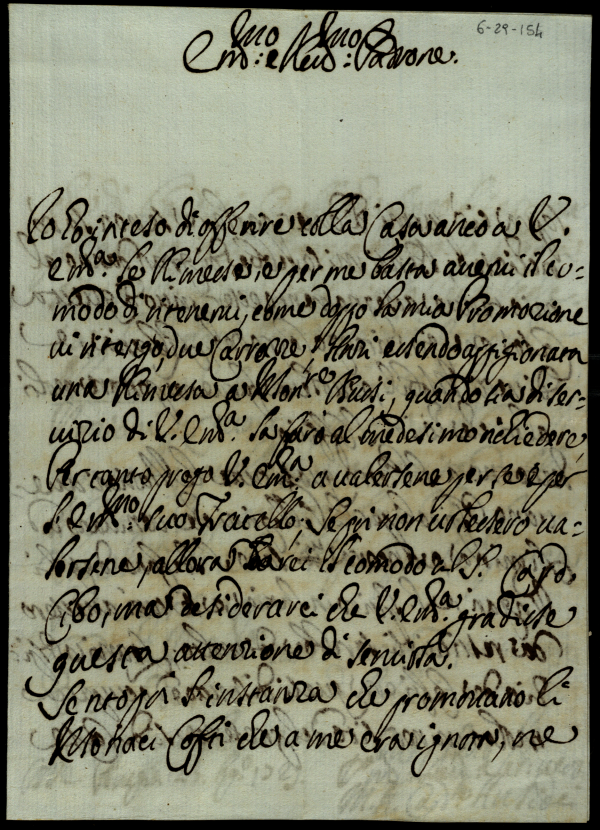 6-29-154
Em.mo e Reu.mo Padrone.
Io hò inteso di offerire colla Casa anco a V.
Em.a le Rimesse, e per me basta auerui il co=
modo di ritenerui, come doppo la mia Promozione
ui ritengo, due Carrozze. Anzi essendo appigionata
una Rimessa a Mon.re Buisi, quando sia di ser=
uizio di V. Em.a la farò al medesimo richiedere
Per tanto prego V. Em.a a ualersene per se e per
S. Em.mo suo Fratello. Se poi non uolessero ua=
lersene, allora darei il comodo al S. Card.
Cibo, ma desiderarei che V. Em.a gradisse
questa attenzione di seruirla.
Sento poi l'instanza che promouano li
Monaci Cofti che a me era ignota, ne